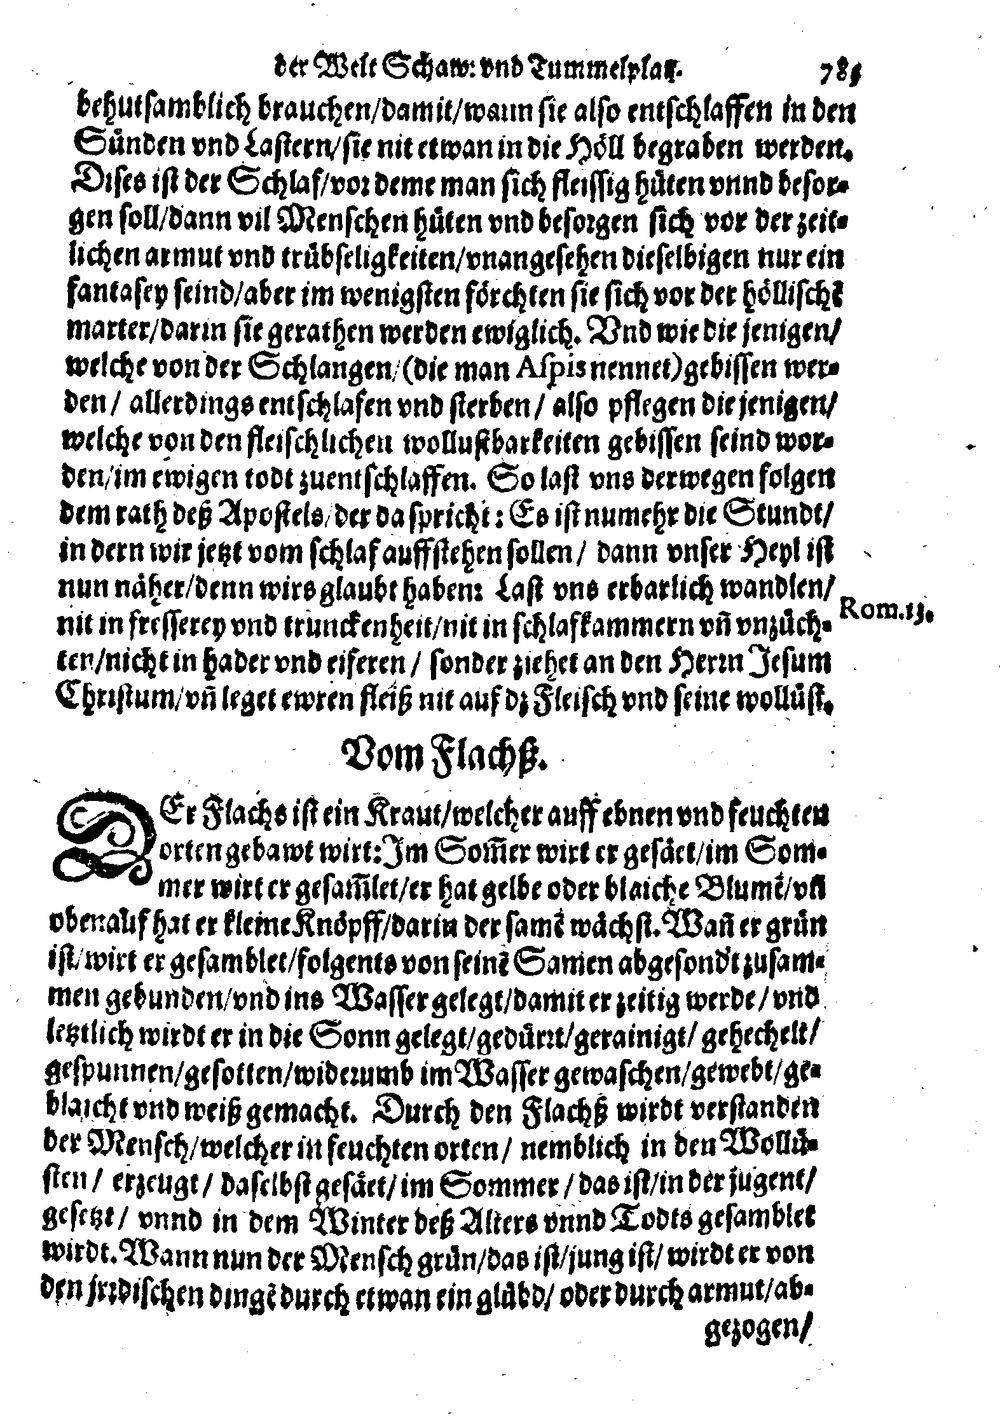 der Welt Schaw: vnd Tummelplatz. 785
behutsamblich brauchen/damit/wann sie also entschlaffen in den
Sünden vnd Lastern/sie nit etwan in die Höll begraben werden.
Dises ist der Schlaf/vor deme man sich fleissig hüten vnnd besor-
gen soll/dann vil Menschen hüten vnd besorgen sich vor der zeit-
lichen armut vnd trübseligkeiten/vnangesehen dieselbigen nur ein
fantasey seind/aber im wenigsten förchten sie sich vor der höllischẽ
marter/darin sie gerathen werden ewiglich. Vnd wie die jenigen/
welche von der Schlangen/(die man Aspis nennet)gebissen wer-
den/ allerdings entschlafen vnd sterben/ also pflegen die jenigen/
welche von den fleischlichen wollustbarkeiten gebissen seind wor-
den/im ewigen todt zuentschlaffen. So last vns derwegen folgen
dem rath deß Apostels/der da spricht: Es ist numehr die Stundt/
in dern wir jetzt vom schlaf auffstehen sollen/ dann vnser Heyl ist
nun näher/denn wirs glaubt haben: Last vns erbarlich wandlen/
nit in fresserey vnd trunckenheit/nit in schlafkammern vñ vnzüch-
Rom.13.
ten/nicht in hader vnd eiferen/ sonder ziehet an den Herrn Jesum
Christum/vñ leget ewren fleiß nit auf dz Fleisch vnd seine wollüst.
Vom Flachß.
DEr Flachs ist ein Kraut/welcher auff ebnen vnd feuchten
orten gebawt wirt: Im Som̃er wirt er gesäet/im Som-
mer wirt er gesam̃let/er hat gelbe oder blaiche Blumẽ/vñ
obenauf hat er kleine Knöpff/darin der samẽ wächst. Wañ er grün
ist/wirt er gesamblet/folgents von seinẽ Samen abgesondt zusam-
men gebunden/vnd ins Wasser gelegt/damit er zeitig werde/vnd
letztlich wirdt er in die Sonn gelegt/gedürrt/gerainigt/ gehechelt/
gespunnen/gesotten/widerumb im Wasser gewaschen/gewebt/ge-
blaicht vnd weiß gemacht. Durch den Flachß wirdt verstanden
der Mensch/welcher in feuchten orten/ nemblich in den Wollü-
sten/ erzeugt/ daselbst gesäet/im Sommer/das ist/in der jugent/
gesetzt/ vnnd in dem Winter deß Alters vnnd Todts gesamblet
wirdt. Wann nun der Mensch grün/das ist/jung ist/ wirdt er von
den jrrdischen dingẽ durch etwan ein glübd/ oder durch armut/ab-
gezogen/